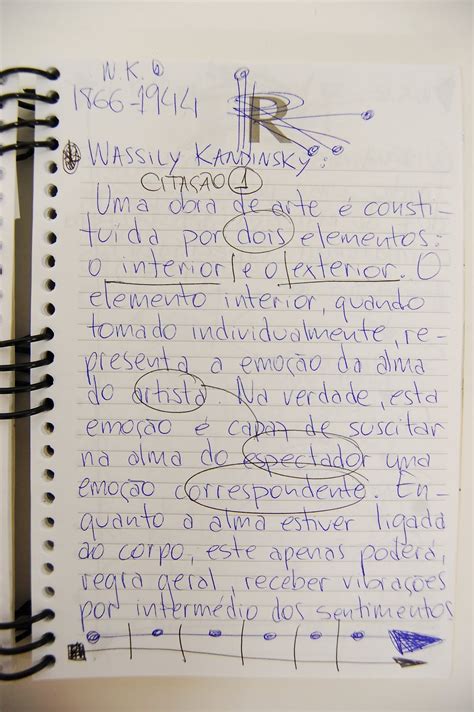 W.K.
1866-1944
R
WASSILY KANDINSKY:
CITAÇÃO 1
Uma obra de arte é consti-
tuída por dois elementos:
o interior e o exterior. O
elemento interior, quando
tomado individualmente, re-
presenta a emoção da alma
do artista. Na verdade, esta
emoção é capaz de suscitar
na alma do espectador uma
emoção correspondente. En-
quanto a alma estiver ligada
ao corpo, este apenas poderá,
regra geral, receber vibrações
por intermédio dos sentimentos